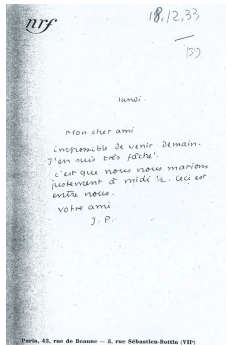 nrf
18.12.33
lundi.
Mon cher ami
impossible de venir demain.
J'en suis très fâché.
c'est que nous nous marions
justement à midi ½. Ceci est
entre nous.
votre ami
J. P.
Paris, 43, rue de Beaune — 5, rue Sébastien-Bottin (VIIᵉ)